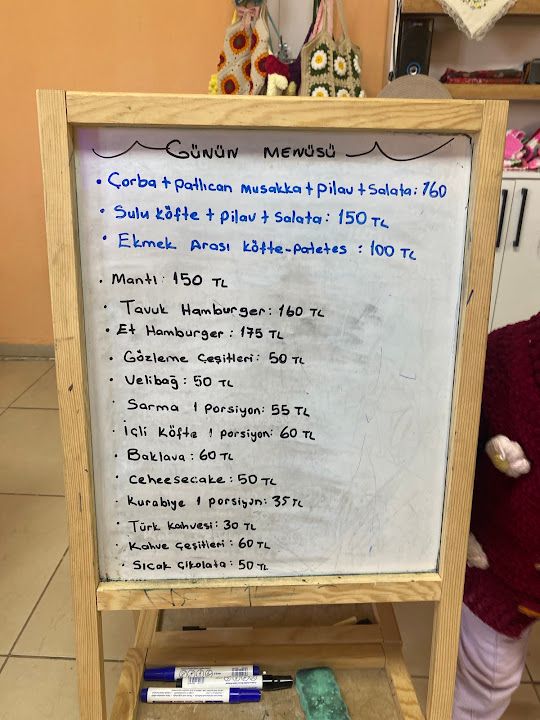 GÜNÜN MENÜSÜ
• Çorba + Patlıcan Musakka + Pilav + Salata: 160
• Sulu Köfte + Pilav + Salata: 150 TL
• Ekmek Arası Köfte-Patetes : 100 TL
• Mantı: 150 TL
• Tavuk Hamburger: 160 TL
• Et Hamburger: 175 TL
• Gözleme Çeşitleri: 50 TL
• Velibağ: 50 TL
• Sarma 1 porsiyon: 55 TL
• İçli Köfte 1 porsiyon: 60 TL
• Baklava: 60 TL
• Ceheesecake: 50 TL
• Kurabiye 1 porsiyon: 35 TL
• Türk Kahvesi: 30 TL
• Kahve Çeşitleri: 60 TL
• Sıcak Çikolata: 50 TL